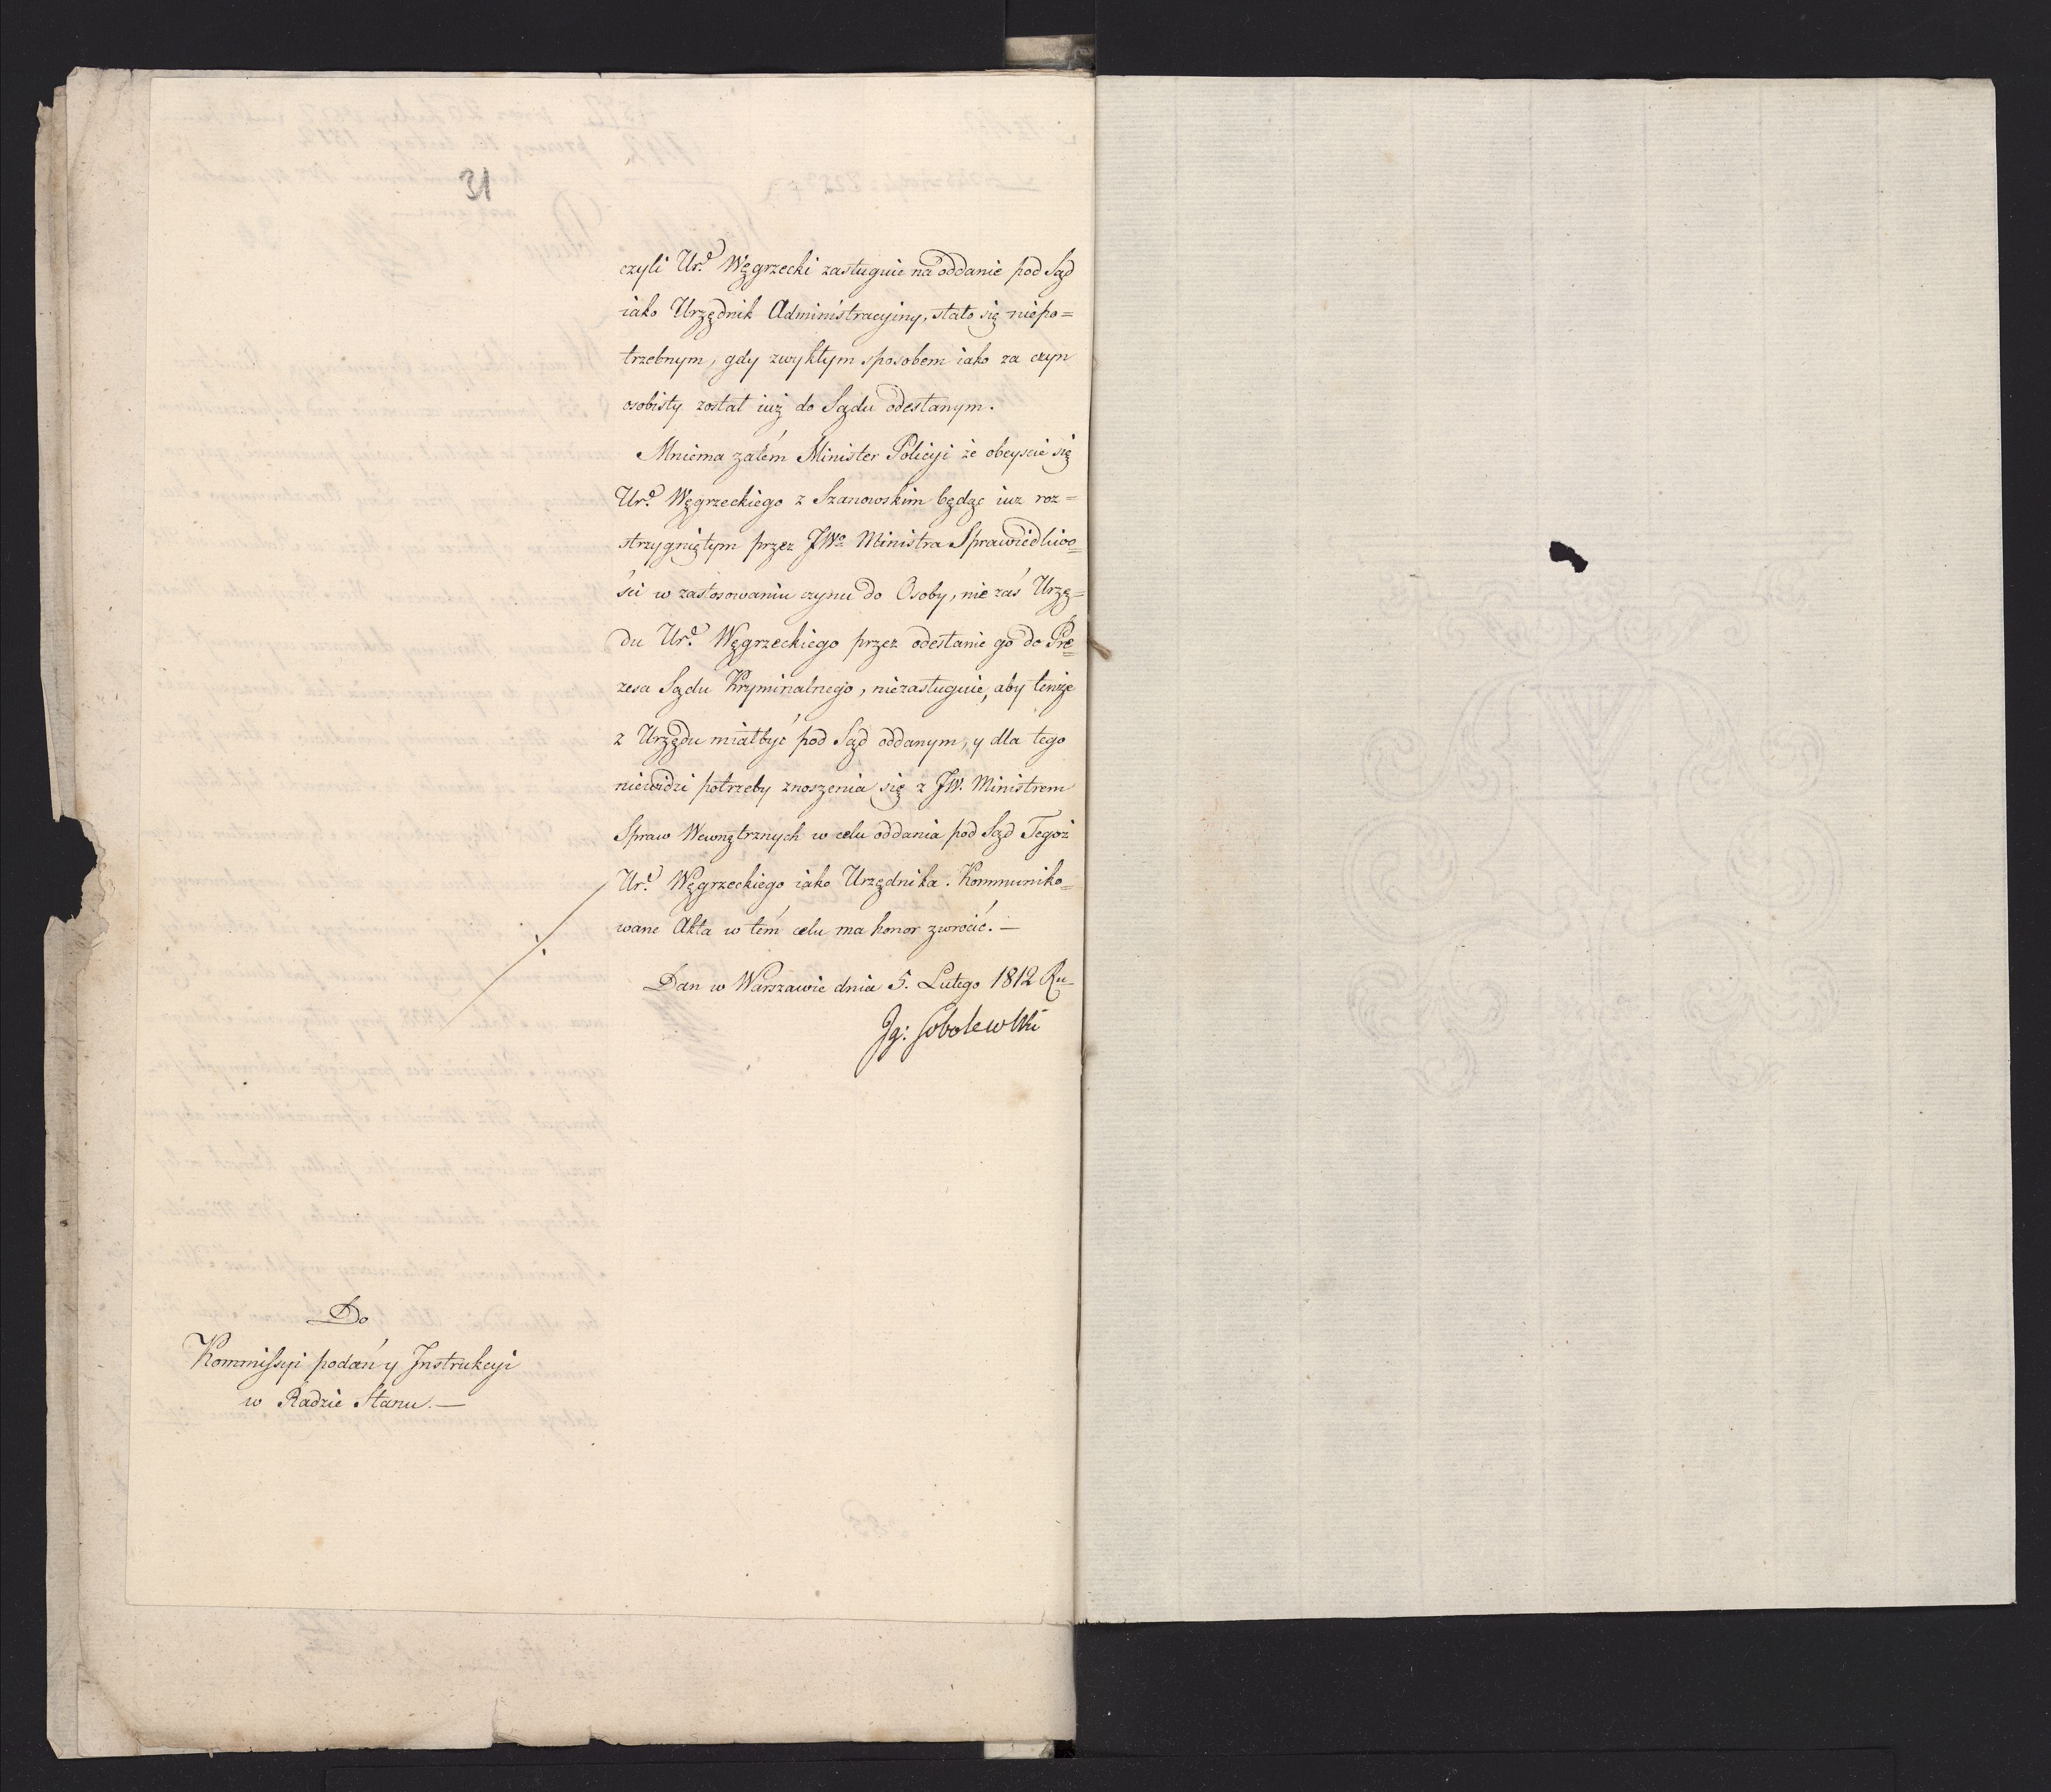 31
czyli Ur.^d Węgrzecki zasługuie na oddanie pod Sąd
iako Urzędnik Administracyiny, stało się niepo=
trzebnym, gdy zwykłym sposobem iako za czyn
osobisty został iuż do Sądu odesłanym.
Mniema zatém Minister Policyi że obeyscie się
Ur.^o Węgrzeckiego z Szanowskim będąc iuz roz=
strzygniętym przez JW^o Ministra Sprawiedliwo=
ści w zastosowaniu czynu do Osoby, nie zaś Urzę=
du Ur.^o Węgrzeckiego przez odesłanie go do Pre=
zesa Sądu Kryminalnego, niezasługuie, aby tenże
z Urzędu miałbyć pod Sąd oddanym, y dla tego
niewidzi potrzeby znoszenia się z JW. Ministrem
Spraw Wewnętrznych w celu oddania pod Sąd Tegoż
Ur.^o Węgrzeckiego iako Urzędnika. Kommuniko=
wane Akta w tém celu ma honor zwrócić. —
Dan w Warszawie dnia 5. Lutego 1812 Ru
Jg: Sobolewski
Do
Kommissyi podań y Instrukcyi
w Radzie Stanu. —